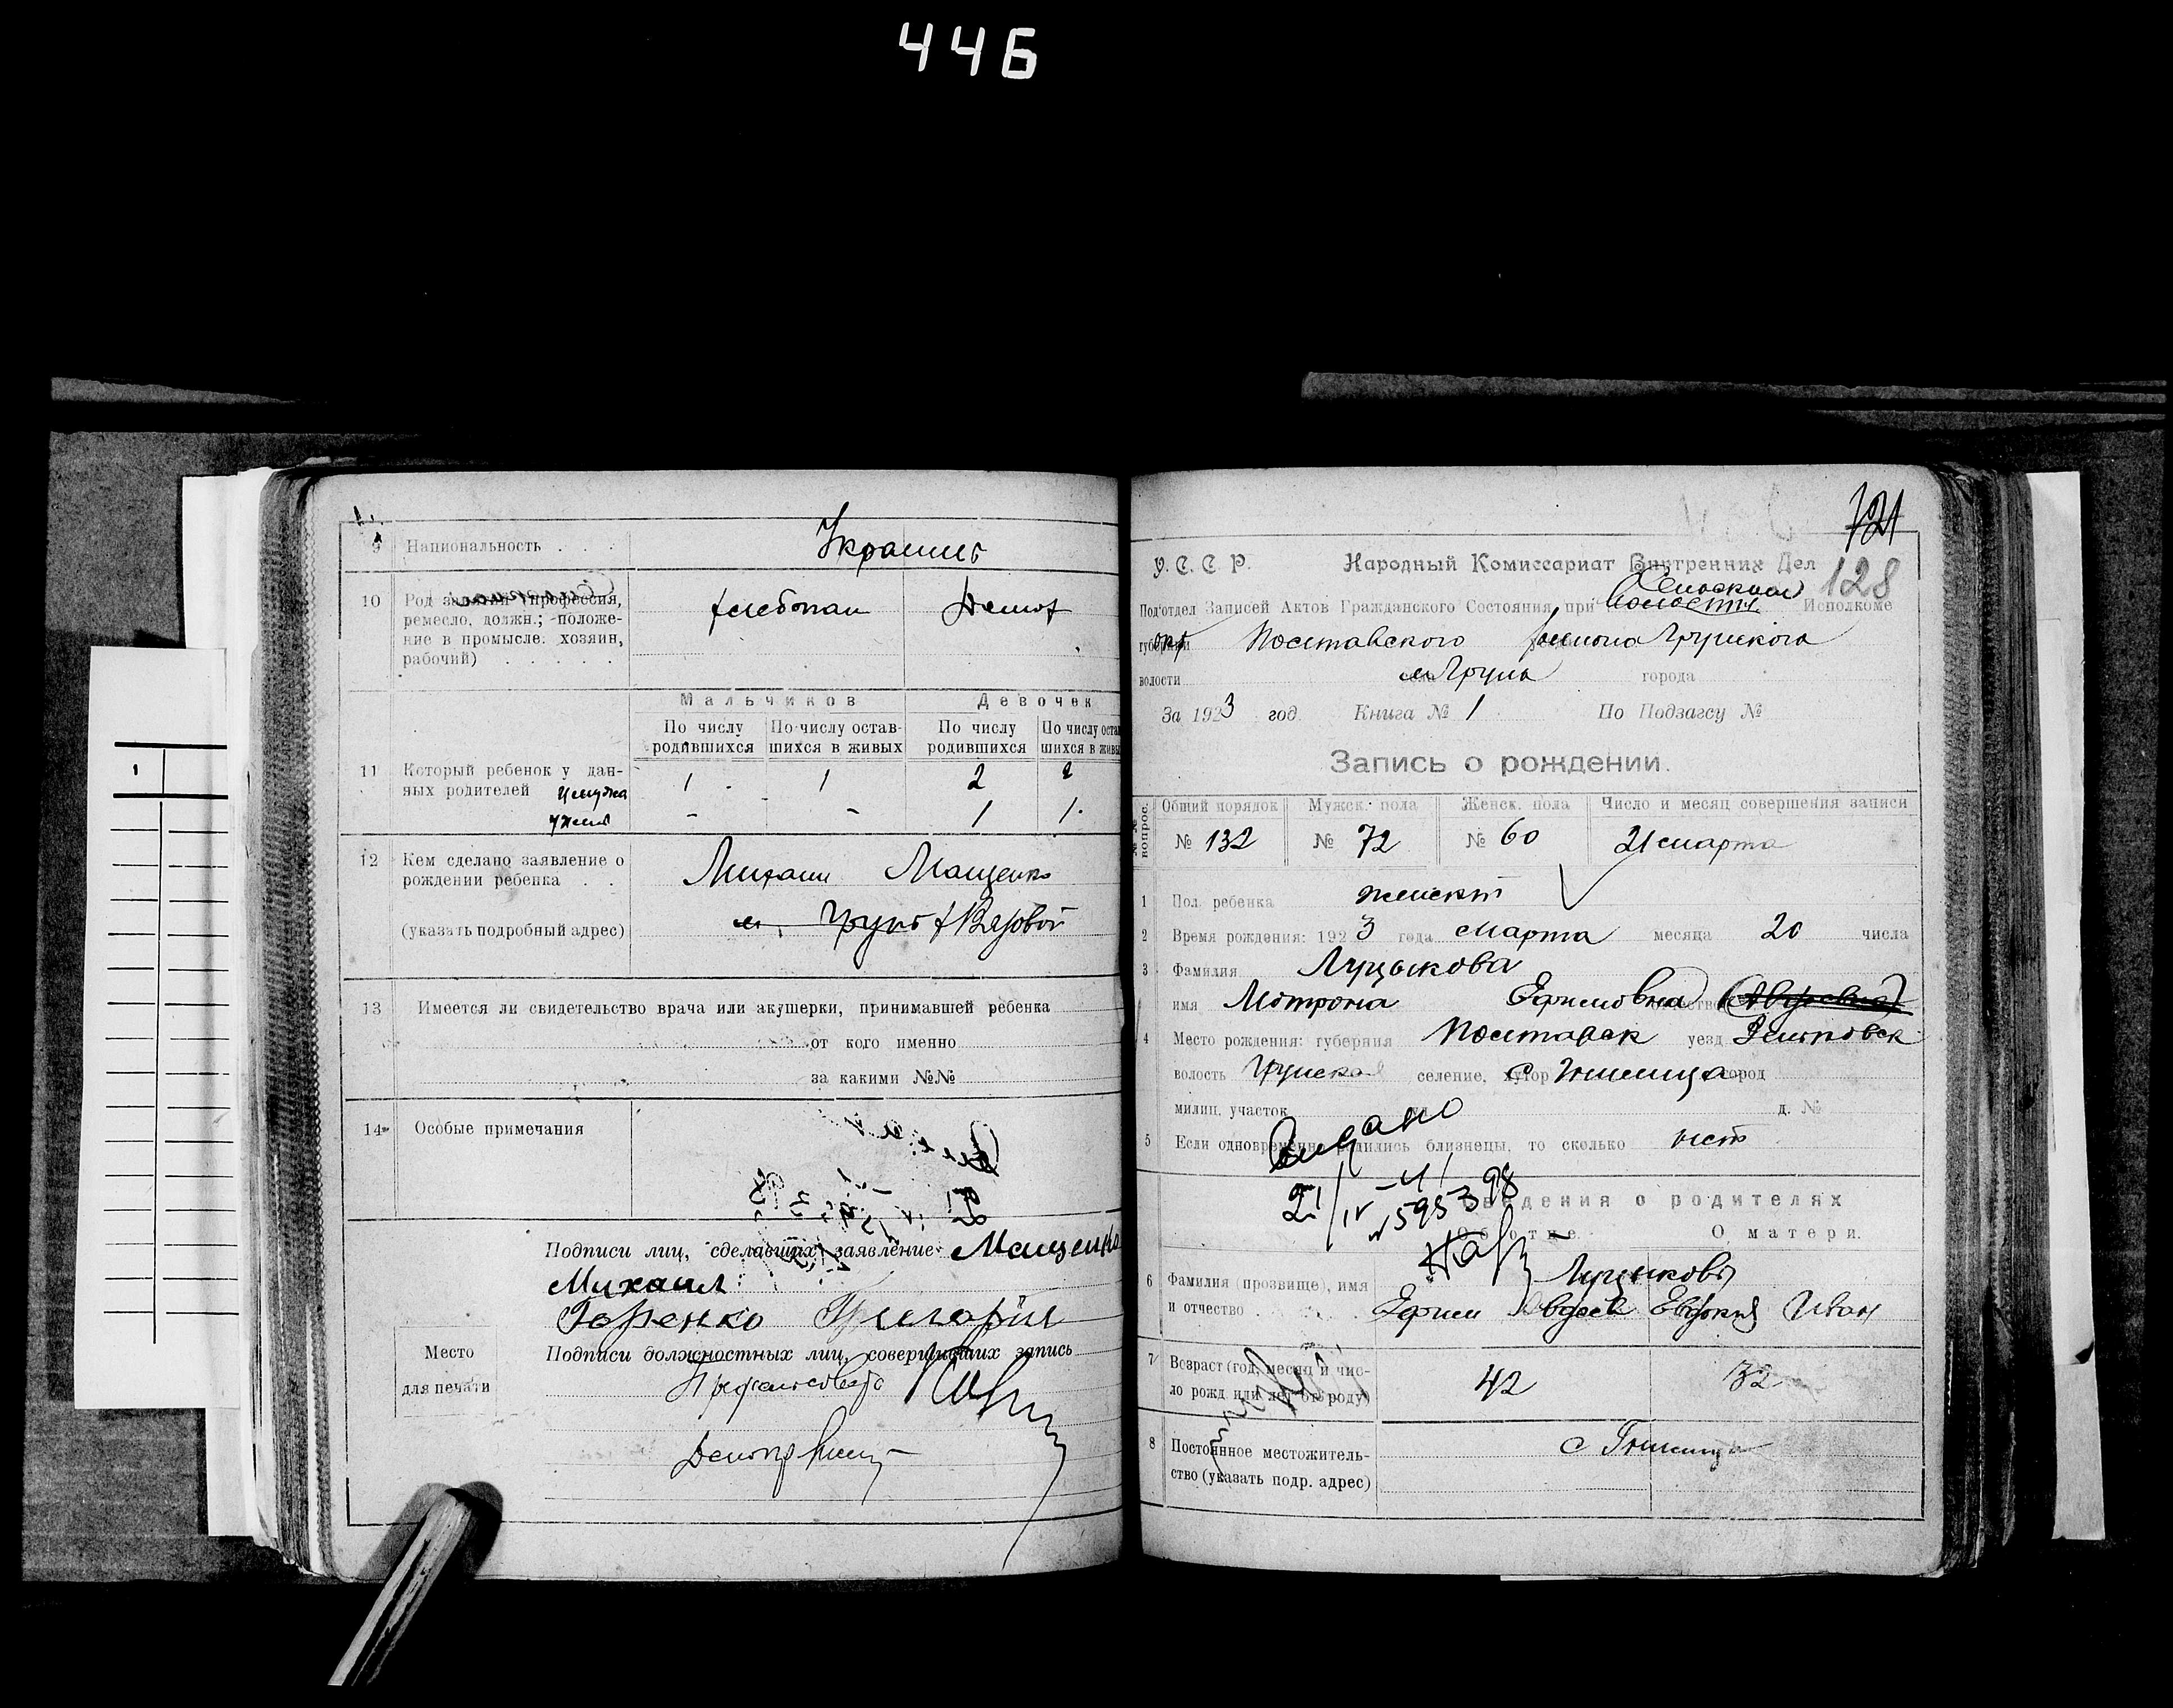 446
9 Национальность . . .
Украинец
10 Род занятий (профессия,
ремесло, должн.; положе-
ние в промысле. хозяин,
рабочий) . . . . .
хлебопаш
Мальчиков Девочек
По числу родившихся По числу остав-шихся в живых По числу родившихся По числу оста шихся в живы
11 Который ребенок у дан-
ных родителей У мужа 1 1 2 2
У жены - - 1 1
12 Кем сделано заявление о
рождении ребенка . .
Михаил Мащенко
(указать подробный адрес)
13 Имеется ли свидетельство врача или акушерки, принимавшей ребенка
от кого именно
за какими №№
14 Особые примечания
Подписи лиц, сделавших заявление Мащенко
Михаил
Григорий
Место
для печати
Подписи должностных лиц, совершивших запись
1
721
128
У. С. С. Р. Народный Комиссариат Внутренних Дел
Под'отдел Записей Актов Гражданского Состояния при волостн. Исполкоме
губернии Полтавского района Грунского
волости м Грунь города
За 1923 год. Книга № 1 По Подзагсу №
Запись о рождении.
№№ вопрос. Общий порядок Мужск. пола Женск. пола Число и месяц совершения записи
№ 132 № 72 № 60 21 марта
1 Пол ребенка женский
2 Время рождения: 1923 года Марта месяца 20 числа
3 Фамилия Луцыкова
имя Мотрона Ефимовна отчество
4 Место рождения: губерния Полтавск уезд Зеньковск
волость Грунская селение, хутор с город
милиц. участок ул. д. №
5 Если одновременно родились близнецы, то сколько нет
Выдано
21/IV-41
№ 595398
Сведения о родителях
Об отце. О матери.
6 Фамилия (прозвище), имя
и отчество . . . .
Луцыковы
Ефим Авдеев Евдокия Иван
7 Возраст (год, месяц и чис-
ло рожд. или лет от роду)
42 32
8 Постоянное местожитель-
ство (указать подр. адрес)